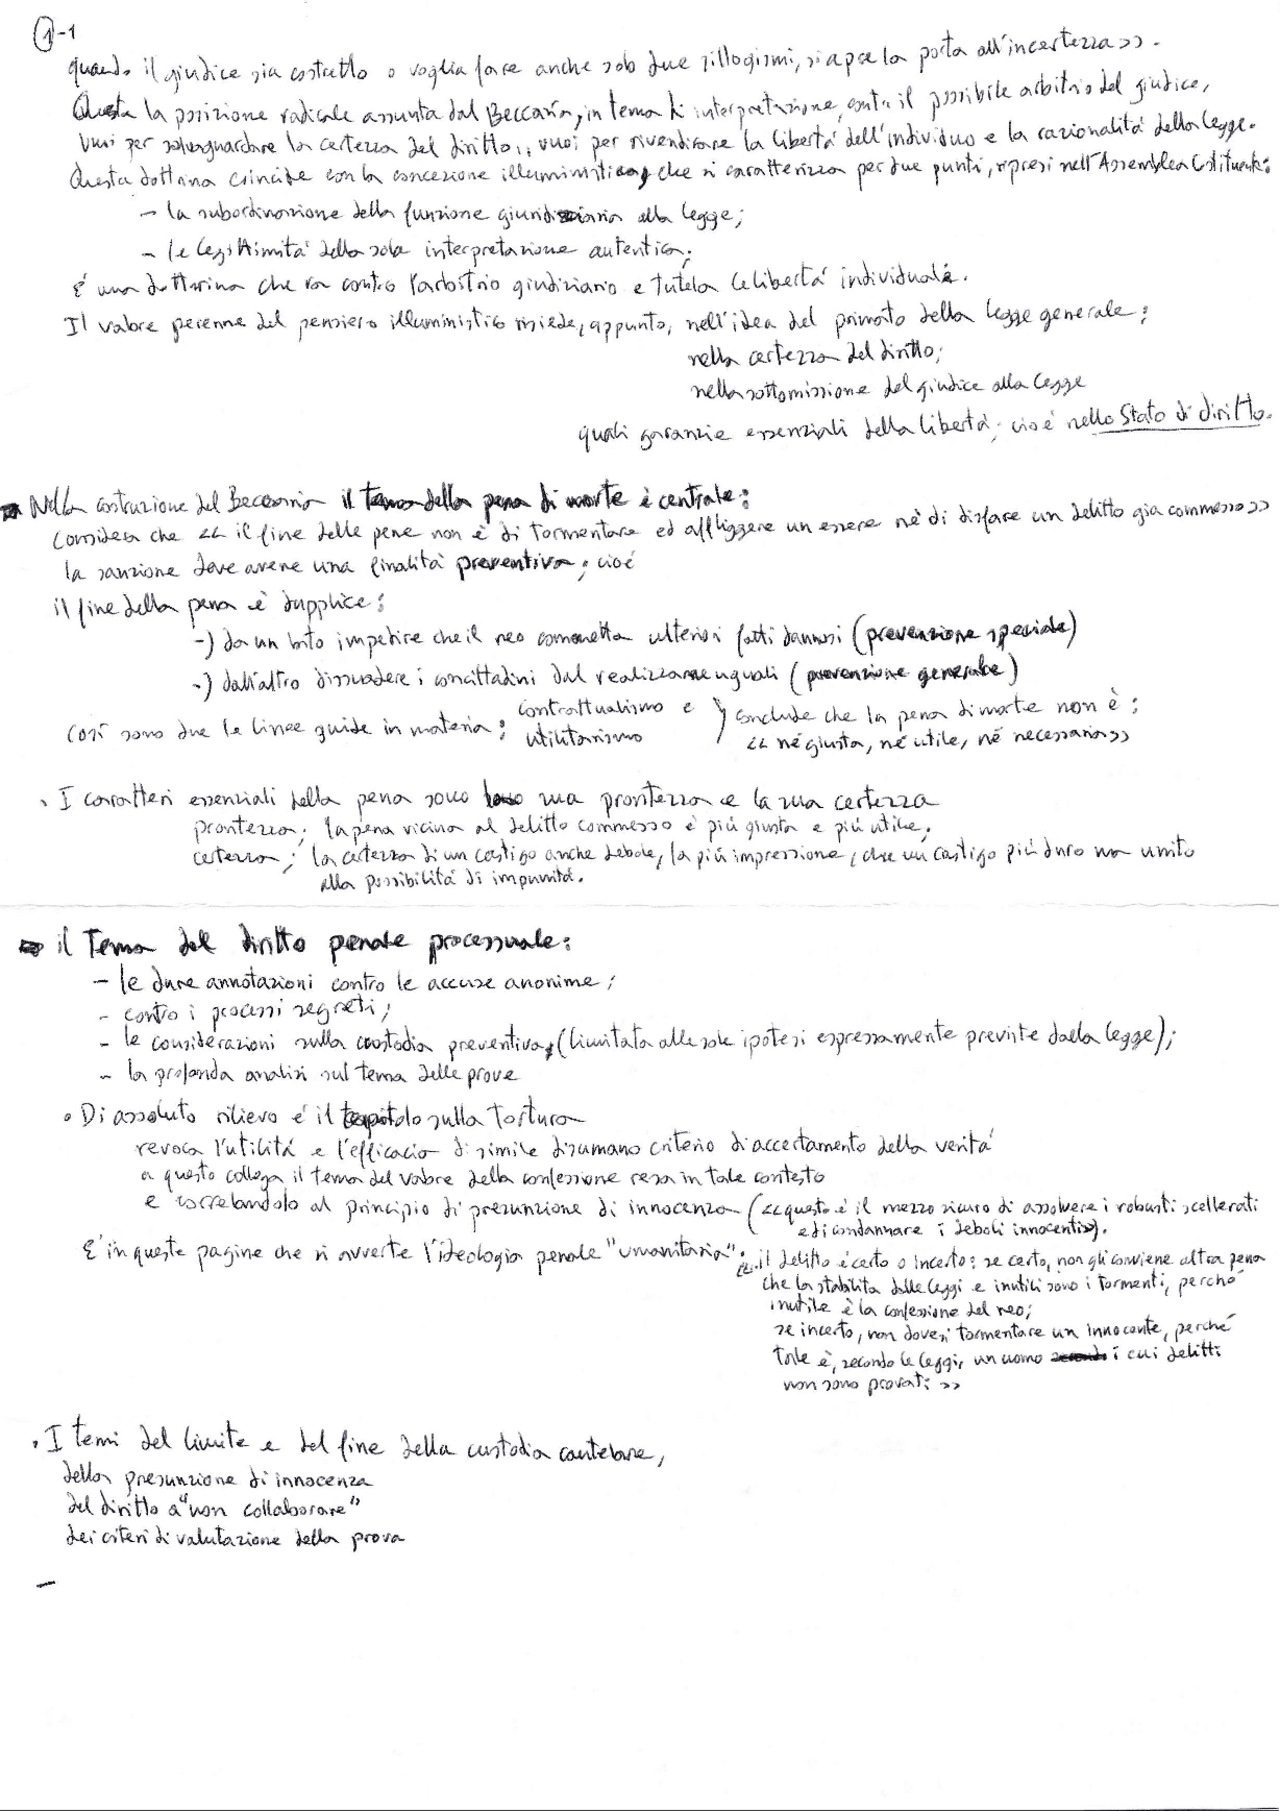 1-1
quando il giudice sia costretto o voglia fare anche solo due sillogismi, si apre la porta all'incertezza>>.
Questa la posizione radicale assunta dal Beccaria, in tema di interpretazione, contro il possibile arbitrio del giudice,
vuoi per salvaguardare la certezza del diritto, vuoi per rivendicare la libertà dell'individuo e la razionalità della legge.
Questa dottrina coincide con la concezione illuministica, che si caratterizza per due punti, ripresi nell'Assemblea Costituente:
- la subordinazione della funzione giudiziaria alla legge;
- la legittimità della sola interpretazione autentica;
È una dottrina che va contro l'arbitrio giudiziario e tutela le libertà individuali.
Il valore perenne del pensiero illuministico risiede, appunto, nell'idea del primato della legge generale;
nella certezza del diritto;
nella sottomissione del giudice alla legge
quali garanzie essenziali della libertà; cioè nello Stato di diritto.
Nella costruzione del Beccaria il tema della pena di morte è centrale:
considera che << il fine delle pene non è di tormentare ed affliggere un essere né di disfare un delitto già commesso>>
la sanzione deve avere una finalità preventiva; cioè
il fine della pena è duplice:
-) da un lato impedire che il reo commetta ulteriori fatti dannosi (prevenzione speciale)
-) dall'altro dissuadere i concittadini dal realizzarne uguali (prevenzione generale)
Così sono due le linee guide in materia: contrattualismo e
utilitarismo
} conclude che la pena di morte non è:
<< né giusta, né utile, né necessaria>>
• I caratteri essenziali della pena sono la sua prontezza e la sua certezza
prontezza; la pena vicina al delitto commesso è più giusta e più utile;
certezza; la certezza di un castigo anche debole, fa più impressione, che un castigo più duro ma unito
alla possibilità di impunità.
il Tema del diritto penale processuale:
- le dure annotazioni contro le accuse anonime;
- contro i processi segreti;
- le considerazioni sulla custodia preventiva, (limitata alle sole ipotesi espressamente previste dalla legge);
- la profonda analisi sul tema delle prove
• Di assoluto rilievo è il capitolo sulla tortura
revoca l'utilità e l'efficacia di simile disumano criterio di accertamento della verità
a questo collega il tema del valore della confessione resa in tale contesto
e correlandolo al principio di presunzione di innocenza (<<questo è il mezzo sicuro di assolvere i robusti scellerati
e di condannare i deboli innocenti>>).
È in queste pagine che si avverte l'ideologia penale "umanitaria":
<< il delitto è certo o incerto: se certo, non gli conviene altra pena
che la stabilita dalle leggi e inutili sono i tormenti, perché
inutile è la confessione del reo;
se incerto, non devesi tormentare un innocente, perché
tale è, secondo le leggi, un uomo i cui delitti
non sono provati >>
• I temi del limite e del fine della custodia cautelare,
della presunzione di innocenza
del diritto a "non collaborare"
dei criteri di valutazione della prova
-